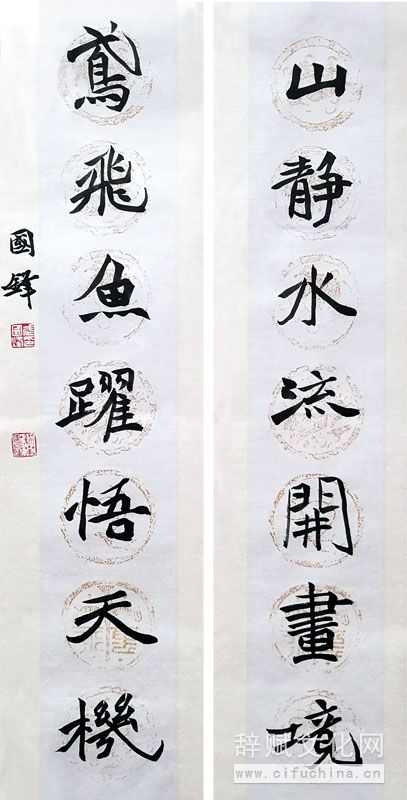 山静水流開畫境
鳶飛魚躍悟天機
國鋒
辞赋文化网
www.cifuchina.com